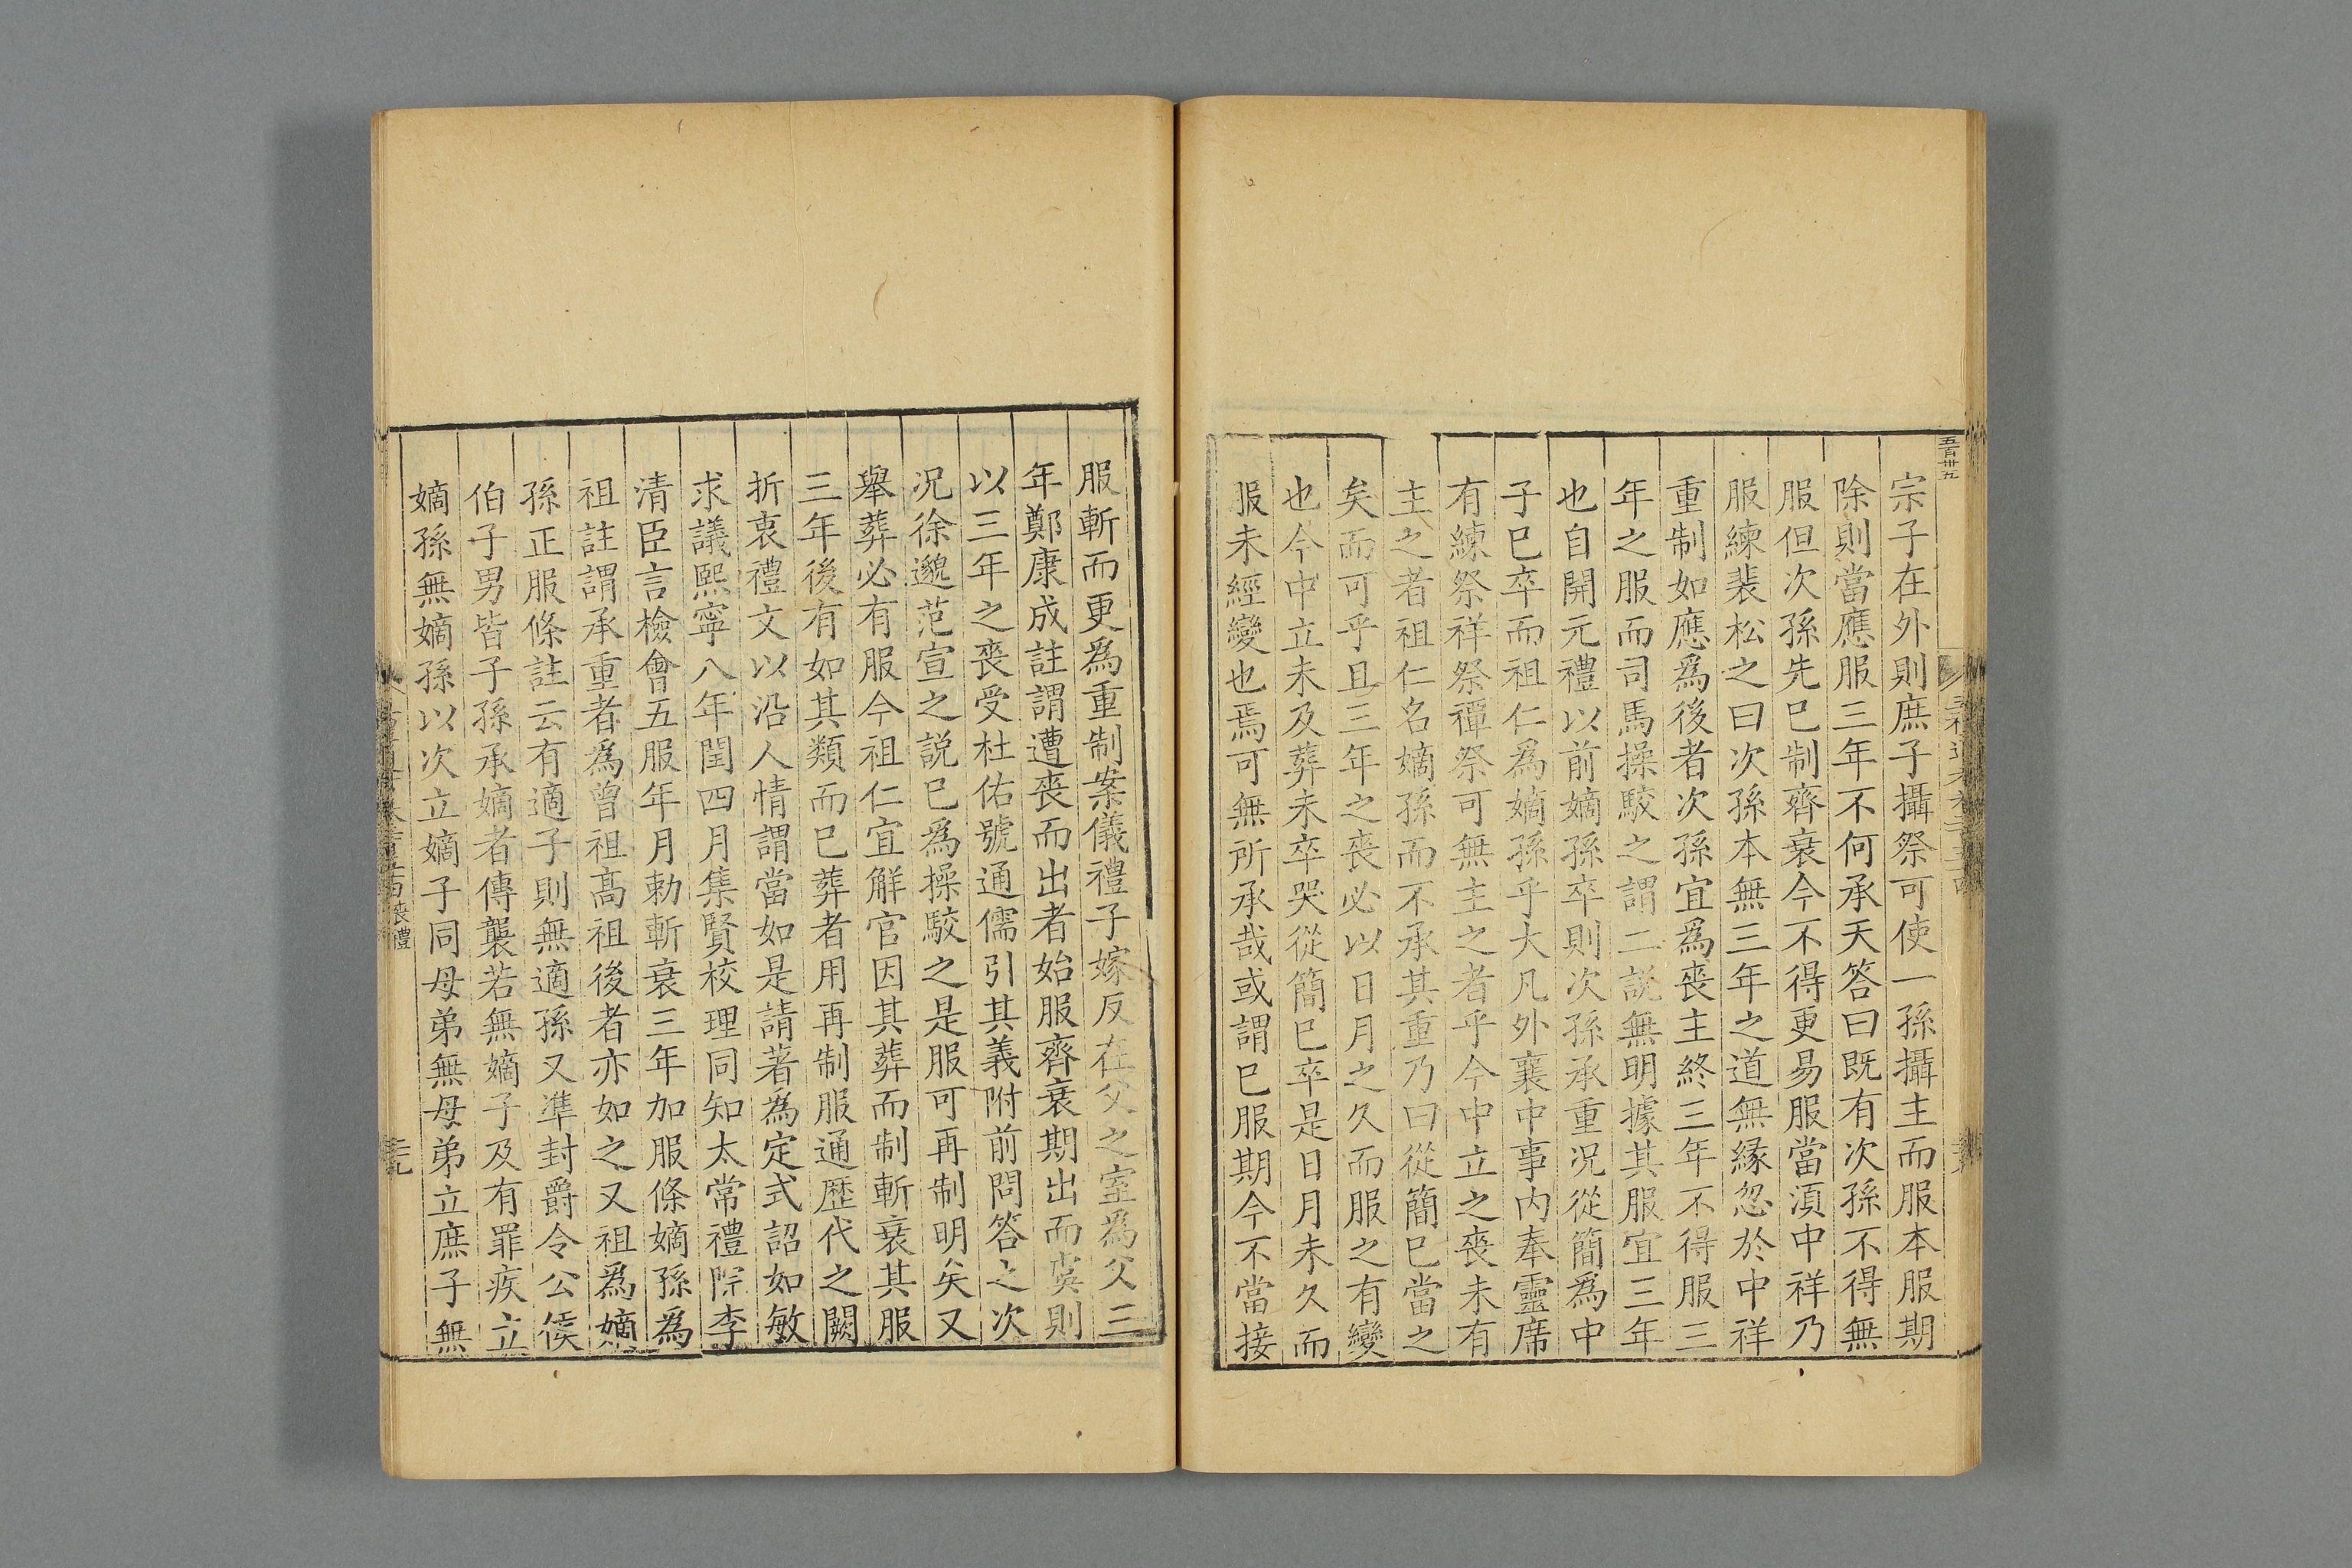 五百卅九
宗子在外則庶子攝祭可使一孫攝主而服本服期
除則當應服三年不何承天答曰既有次孫不得無
服但次孫先巳制齊衰今不得更易服當湏中祥乃
服練裴松之曰次孫本無三年之道無縁忽於中祥
重制如應爲後者次孫宜爲喪主終三年不得服三
年之服而司馬操駮之謂二説無明據其服宜三年
也自開元禮以前嫡孫卒則次孫承重况從簡爲中
子巳卒而祖仁爲嫡孫乎大凡外襄中事内奉靈席
有練祭祥祭禫祭可無主之者乎今中立之喪未有
主之者祖仁名嫡孫而不承其重乃曰從簡巳當之
矣而可乎且三年之喪必以日月之久而服之有變
也今中立未及葬未卒哭從簡巳卒是日月未久而
服未經變也焉可無所承哉或謂巳服期今不當接
服斬而更爲重制案儀禮子嫁反在父之室爲父三
年鄭康成註謂遭喪而出者始服齊衰期出而虞則
以三年之喪受杜佑號通儒引其義附前問答之次
况徐邈范宣之説巳爲操駮之是服可再制明矣又
舉葬必有服今祖仁宜觧官因其葬而制斬衰其服
三年後有如其類而巳葬者用再制服通歴代之闕
折衷禮文以沿人情謂當如是請著為定式詔如敏
求議熙寧八年閏四月集賢校理同知太常禮院李
清臣言檢會五服年月勅斬衰三年加服條嫡孫爲
祖註謂承重者爲曾祖高祖後者亦如之又祖爲嫡
孫正服條註云有適子則無適孫又準封爵令公侯
伯子男皆子孫承嫡者傳襲若無嫡子及有罪疾立
嫡孫無嫡孫以次立嫡子同母弟無母弟立庶子無
喪禮